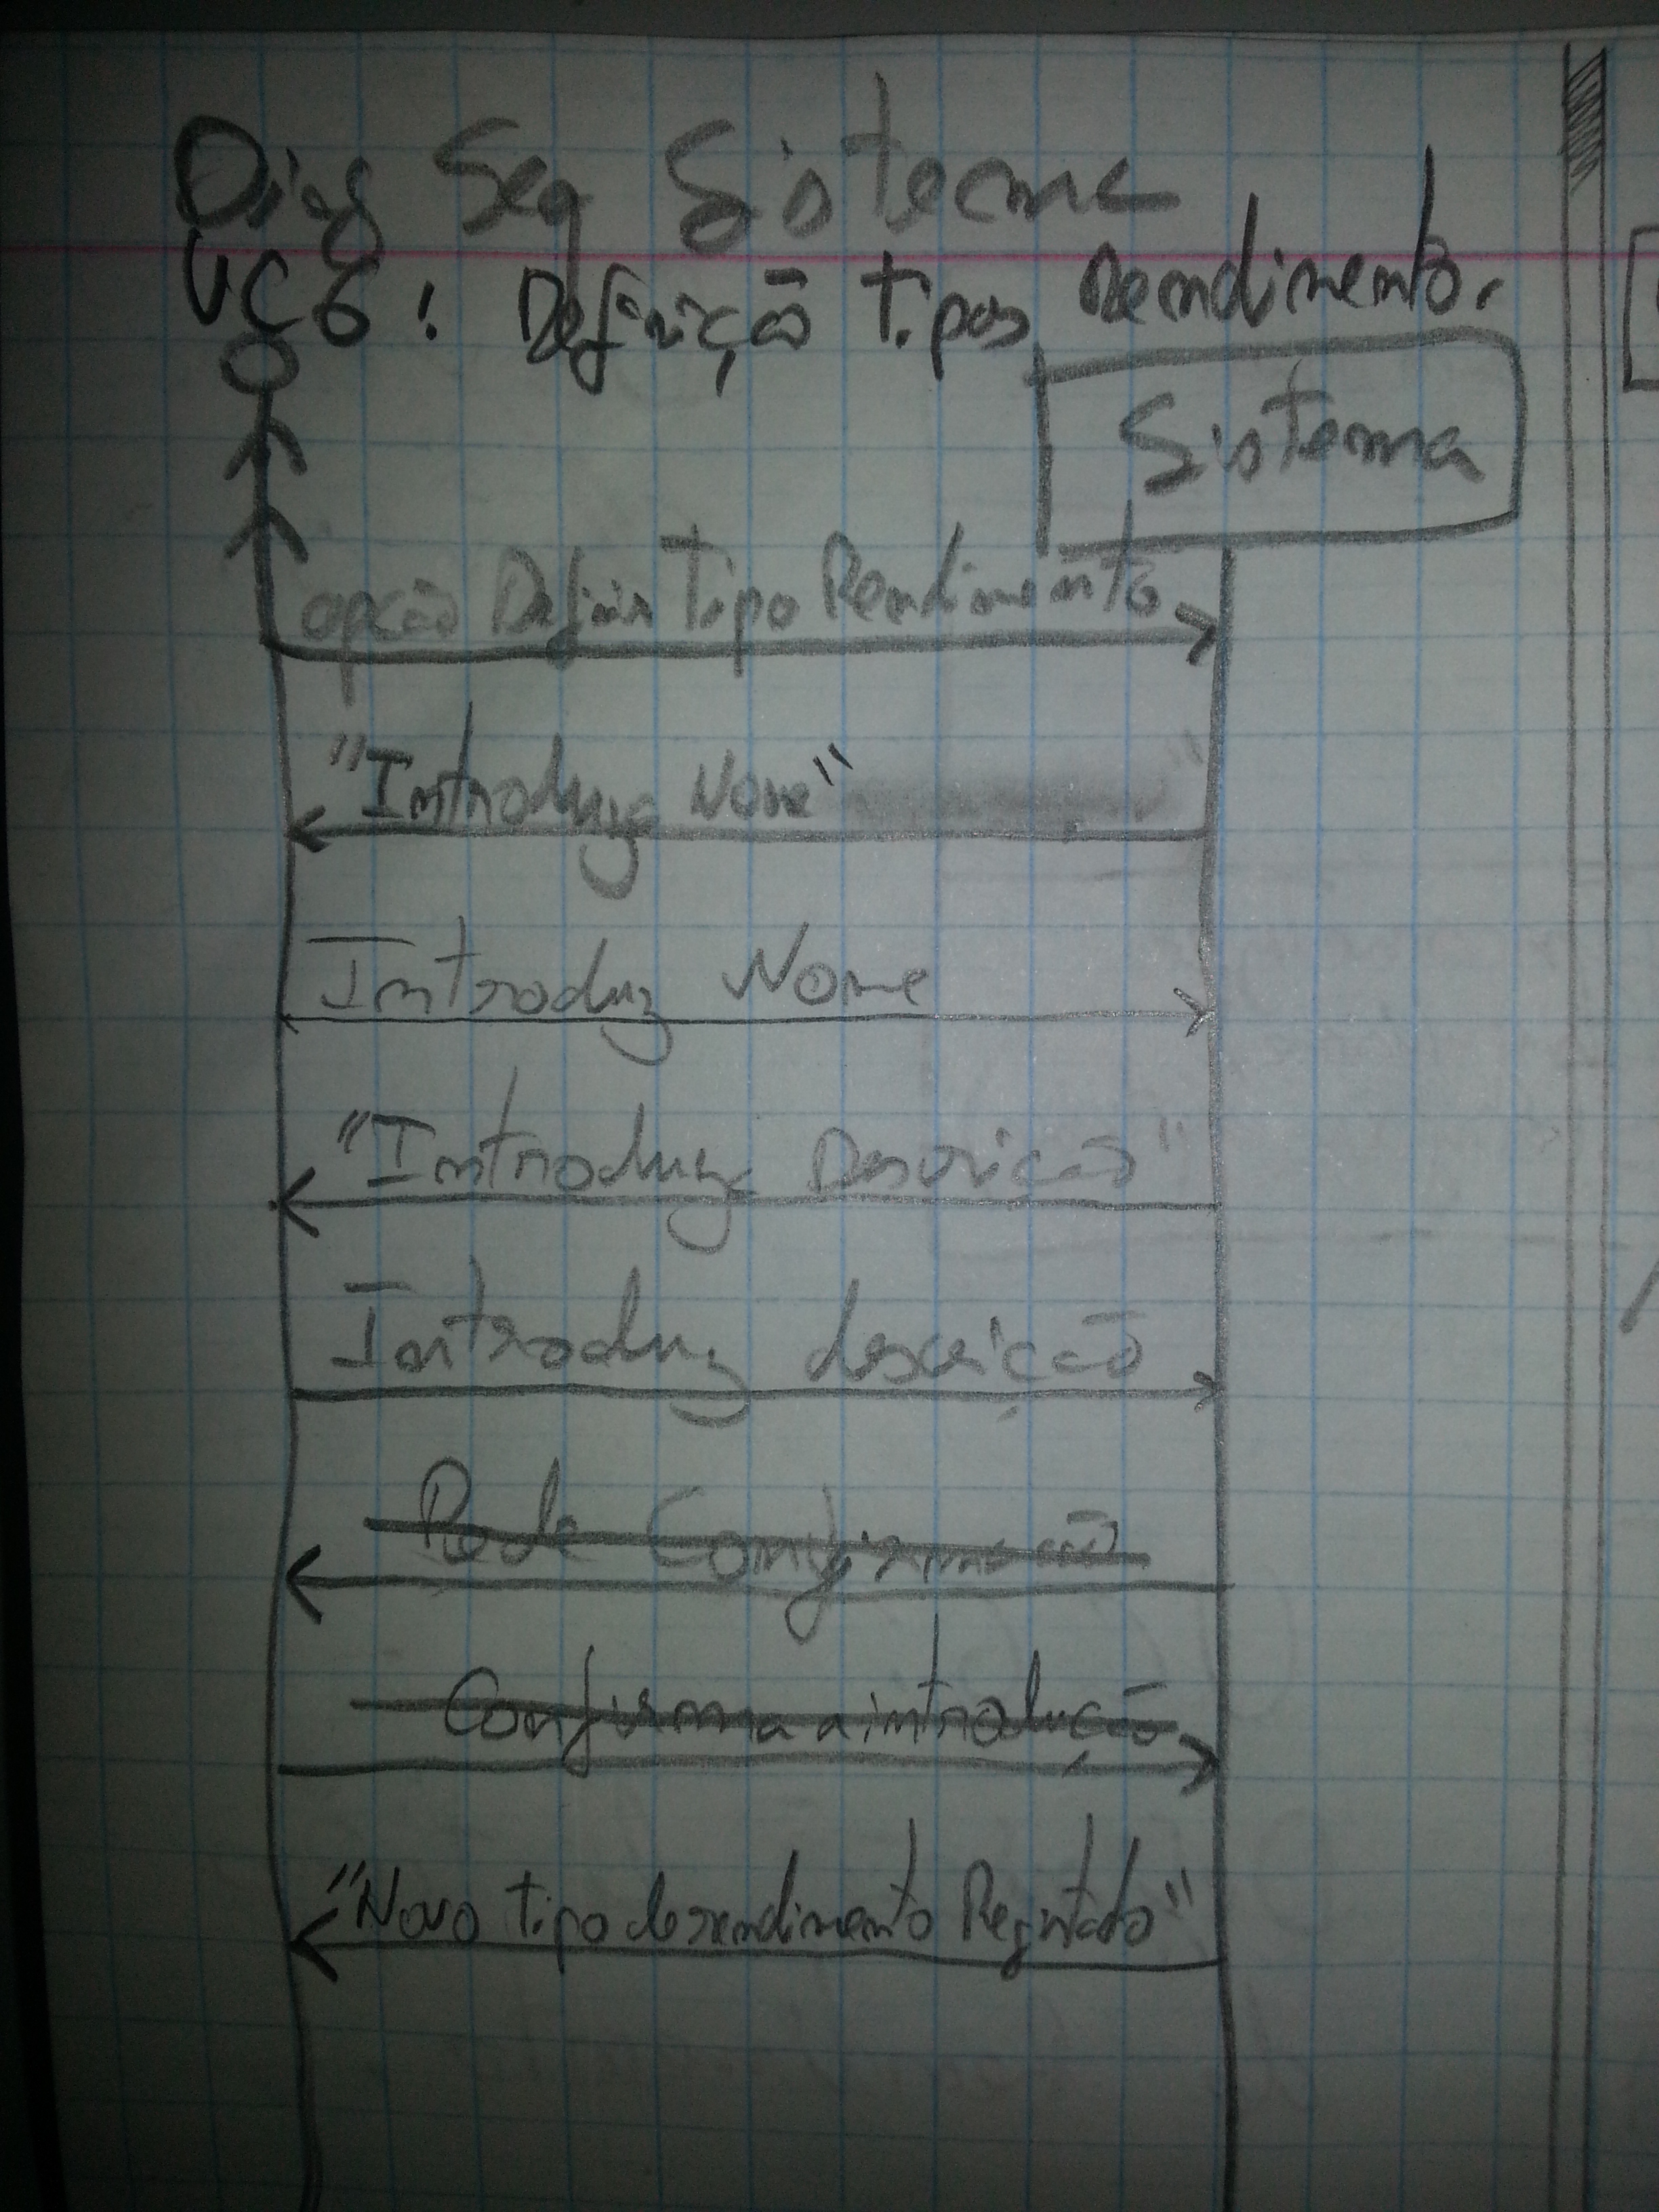 Diag Seq Sistema
UC6: Definição Tipos Rendimento.
Sistema
opção Definir Tipo Rendimento
"Introduza Nome"
Introduz Nome
"Introduza Descrição"
Introduz descrição
Pede Confirmação
Confirma a introdução
"Novo tipo de rendimento Registado"